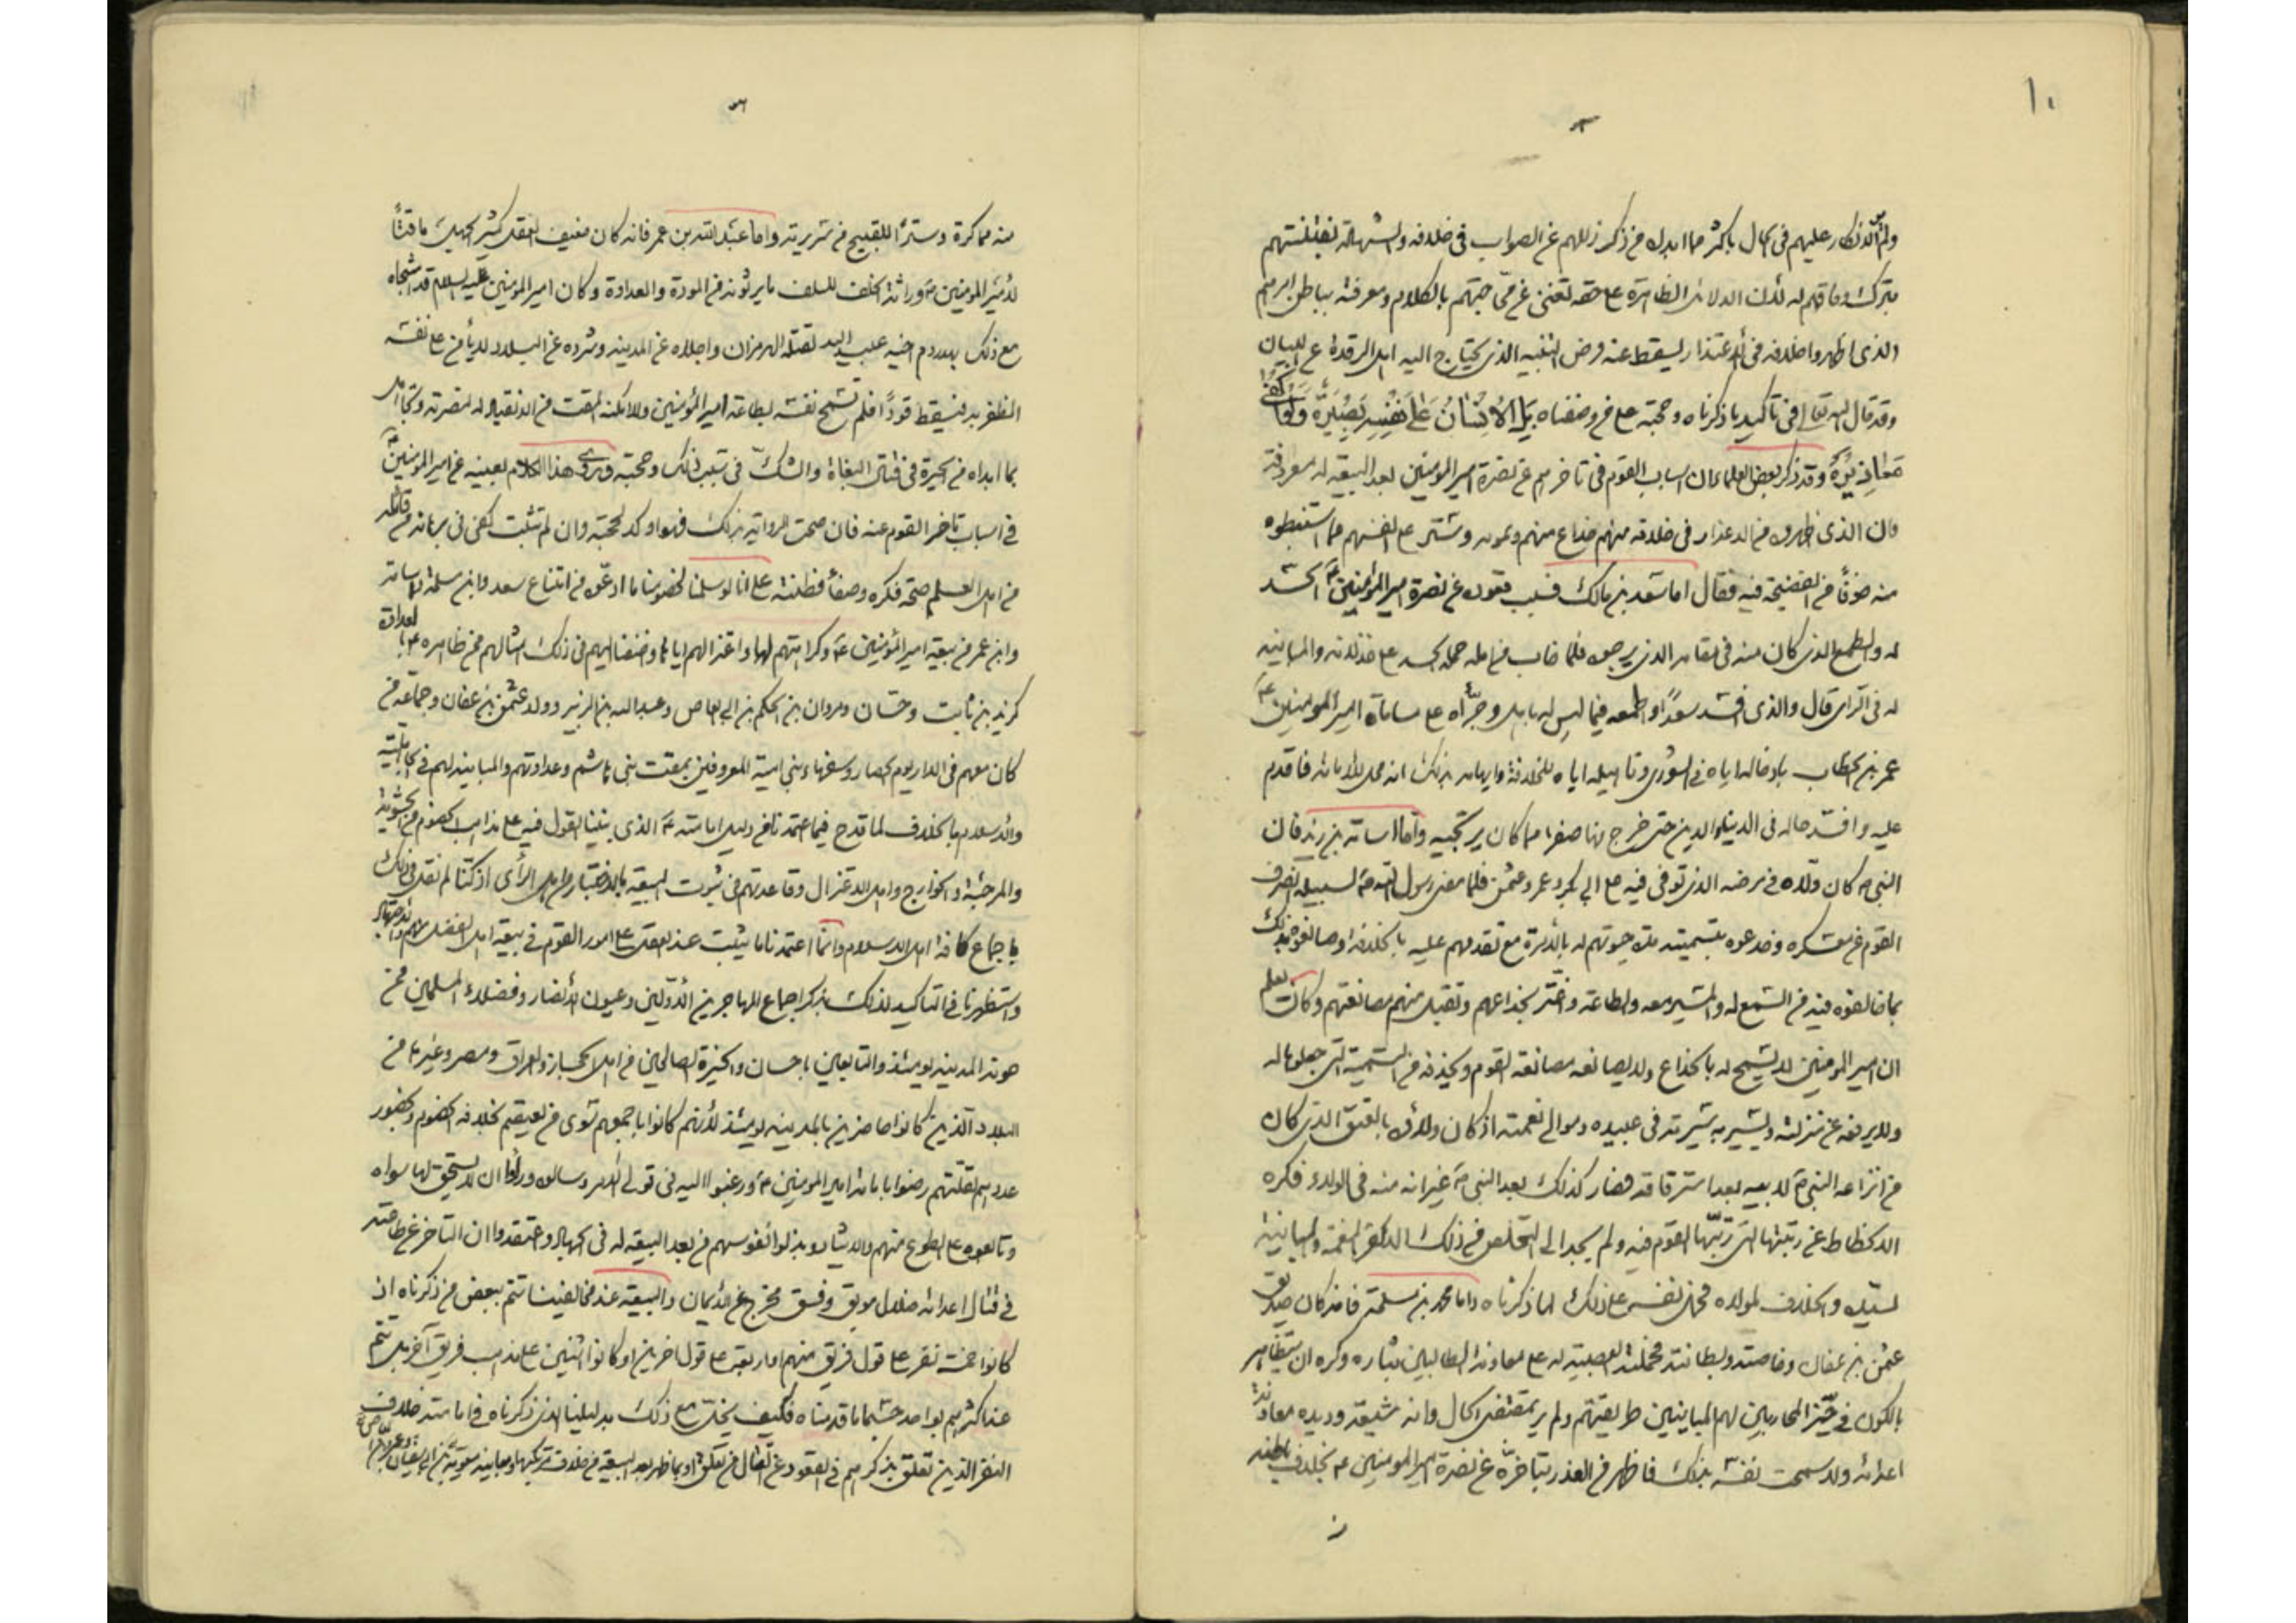 ١٠
ولم الانكار عليهم في الحال باكثر مما ابداه من ذكر زللهم عن الصواب في خلافه والشهادة بفتنتهم
بترك وفاقهم له لان الدلائل الظاهرة على حقه تغنى عن محاجتهم بالكلام ومعرفته بباطن امرهم
الذى اظهروا خلافه في الاعتذار يسقط عنه فرض التنبيه الذى يحتاج اليه اهل الرقدة عن البيان
وقد قال الله تعالى في تاكيد ما ذكرناه وحجته على من وصفناه بَلِ الْاِنْسَانُ عَلىٰ نَفْسِهِ بَصِيرَةٌ وَلَوْ اَلْقىٰ
مَعَاذِيْرَهُ وقد ذكر بعض العلماء ان اسباب القوم في تاخرهم عن نصرة امير المؤمنين بعد البيعة له معروفة
وان الذى اظهروه من الاعذار في خلافه منهم خداع منهم وتمويه وستر على انفسهم مما استبطنوه
منه خوفاً من الفضيحة فيه فقال اما سعد بن مالك فسبب قعوده عن نصرة امير المؤمنين ع الحسد
له والطمع الذى كان منه في مقامه الذى يرجوه فلما خاب من امله حمله الحسد على خذلانه والمباينة
له في الرأى قال والذى افسد سعداً واطمعه فيما ليس له باهل وجرّأه على مساماة امير المؤمنين ع
عمر بن الخطاب بادخاله اياه في الشورى وتاهيله اياه للخلافة وايهامه بذلك انه محل للامامة فاقدم
عليه وافسد حاله في الدنيا والدين حتى خرج منها صفرا مما كان يرتجيه واما اسامة بن زيد فان
النبي ص كان ولاه في مرضه الذى توفى فيه على ابي بكر وعمر وعثمن فلما مضى رسول الله ص لسبيله انصرف
القوم عن معسكره وخدعوه بتسميته مدة حيوتهم له بالامرة مع تقدمهم عليه بالخلافة وصانعوه بذلك
بما خالفوه فيه من السمع له والمسير معه والطاعة واغتر بخداعهم وتقبل منهم مصانعتهم وكان يعلم
ان امير المؤمنين لا يسمح له بالخداع ولا يصانعه مصانعة القوم ويحذفه من التسمية التى جعلوها له
ولا يرفعه عن منزلته ويسير به سيرته في عبيده وموالي نعمته اذ كان ولاؤه بالعتق الذى كان
من النبي ص لابيه بعد استرقاقه فصار كذلك بعد النبي ص غير انه منه في الولاء فكره
الانحطاط عن رتبته التى رتّبها القوم فيه ولم يجد الى التخلص من ذلك الا كفر النعمة والمباينة
لسيده والخلاف لمولاه فحمل نفسه على ذلك لما ذكرناه واما محمد بن مسلمة فانه كان صديق
عثمن بن عفان وخاصته وبطانته فحملته العصبية له على معاونة الطالبين بثاره وكره ان يتظاهر
بالكون في حيّز المحاربين لهم المباينين طريقتهم ولم ير بمقتضى الحال وانه شيعته ويده معاونة
اعدائه ولا سمحت نفسه بذلك فاظهر من العذر بتاخره عن نصرة امير المؤمنين ع بخلاف باطنه
منه مماكرة وستراً للقبيح من سريرته واما عبد الله بن عمر فانه كان ضعيف العقل كثير الجهل ماقتاً
لامير المؤمنين ع وراثة الخلف للسلف ما يرثونه من المودة والعداوة وكان امير المؤمنين عليه السلام قد اشجاه
مع ذلك بهدر دم اخيه عبيد الله لقتله الهرمزان واجلاه عن المدينة وشرده عن البلاد لا يأمن على نفسه
الظفر به فيسقط قوداً فلم تسمح نفسه بطاعة امير المؤمنين ولا امكنه المقت من الانقياد له لنصرته وتجاهل
بما ابداه من الحيرة في قتال البغاة والشكّ في سبب ذلك وحجته وروى هذا الكلام بعينه عن امير المؤمنين ع
في اسباب تاخر القوم عنه فان صحت الرواية بذلك فهو اوكد لحجته وان لم تثبت كفى في برهانه من قائله
من اهل العلم صحة فكره وصفاء فطنته على انا لو سلمنا لخصومنا ما ادعّوه من امتناع سعد وابن مسلمة واسامة
وابن عمر من بيعة امير المؤمنين ع وكراهتهم لها واعتزالهم اياها وضفنا اليهم في ذلك امثالهم ممن ظاهره بالعداوة
كزيد بن ثابت وحسان ومروان بن الحكم بن ابي العاص وعبد الله بن الزبير وولد عثمن بن عفان وجماعة من
كان معهم في الدار يوم الحصار وسفهاء بني امية المعروفين بمقت بنى هاشم وعداوتهم والمباينة لهم في الجاهلية
والاسلام بالخلاف لما قدح فيما اعتمدناه في دليل امامته ع الذى بنينا القول فيه على مذاهب الخصوم من الحشوية
والمرجئة والخوارج واهل الاعتزال وقاعدتهم في ثبوت البيعة بالاختيار من اهل الرأى اذ كنا لم نقل في ذلك
باجماع كافة اهل الاسلام وانّما اعتمدنا ما يثبت عند العقل على امور القوم في بيعة اهل الفضل منهم والاجتهاد
واستظهرنا في التاكيد لذلك بذكر اجماع المهاجرين الاوّلين وعيون الانصار وفضلاء المسلمين ممن
حوته المدينة يومئذ والتابعين باحسان والخيرة الصالحين من اهل الحجاز والعراق ومصر وغيرها من
البلاد الّذين كانوا حاضرين بالمدينة يومئذ لانهم كانوا باجمعهم سوى من بخلافه الخصوم ويحضر
عددهم لقلتهم رضوا بامامة امير المؤمنين ع ورغبوا اليه في تولى الامر وسالوه ورأوا ان لا يستحق لها سواه
وتابعوه على الطوع منهم والايثار وبذلوا نفوسهم من بعد البيعة له في الجهاد واعتقدوا ان التاخر عن طاعته
في قتال اعدائه ضلال موبق وفسق مخرج عن الايمان والبيعة عند مخالفينا تتم ببعض من ذكرناه اذ
كانوا خمسة نفر على قول فريق منهم او اربعة على قول اخرين او كانوا اثنين على مذهب فريق آخر بل تتم
عند اكثرهم بواحد حسبما قدمناه فكيف يخلّ مع ذلك بدليلنا الذى ذكرناه في امامته خلاف
النفر الذين تعلق بذكرهم في القعود عن القتال من تعلق او بما ظهر بعد البيعة من خلاف ومباينة معوية بن ابي سفيان وعمرو بن العاص